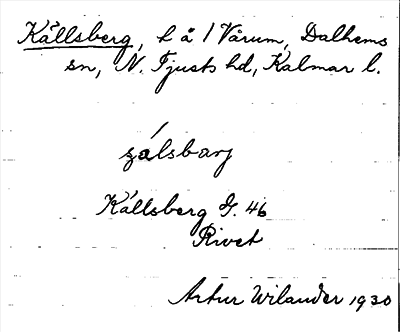 Källsberg, h å 1 Vårum, Dalhems
sn, N. Tjusts hd, Kalmar l.
sálsbarj
Källsberg G. 46
Rivet
Artur Wilander 1930